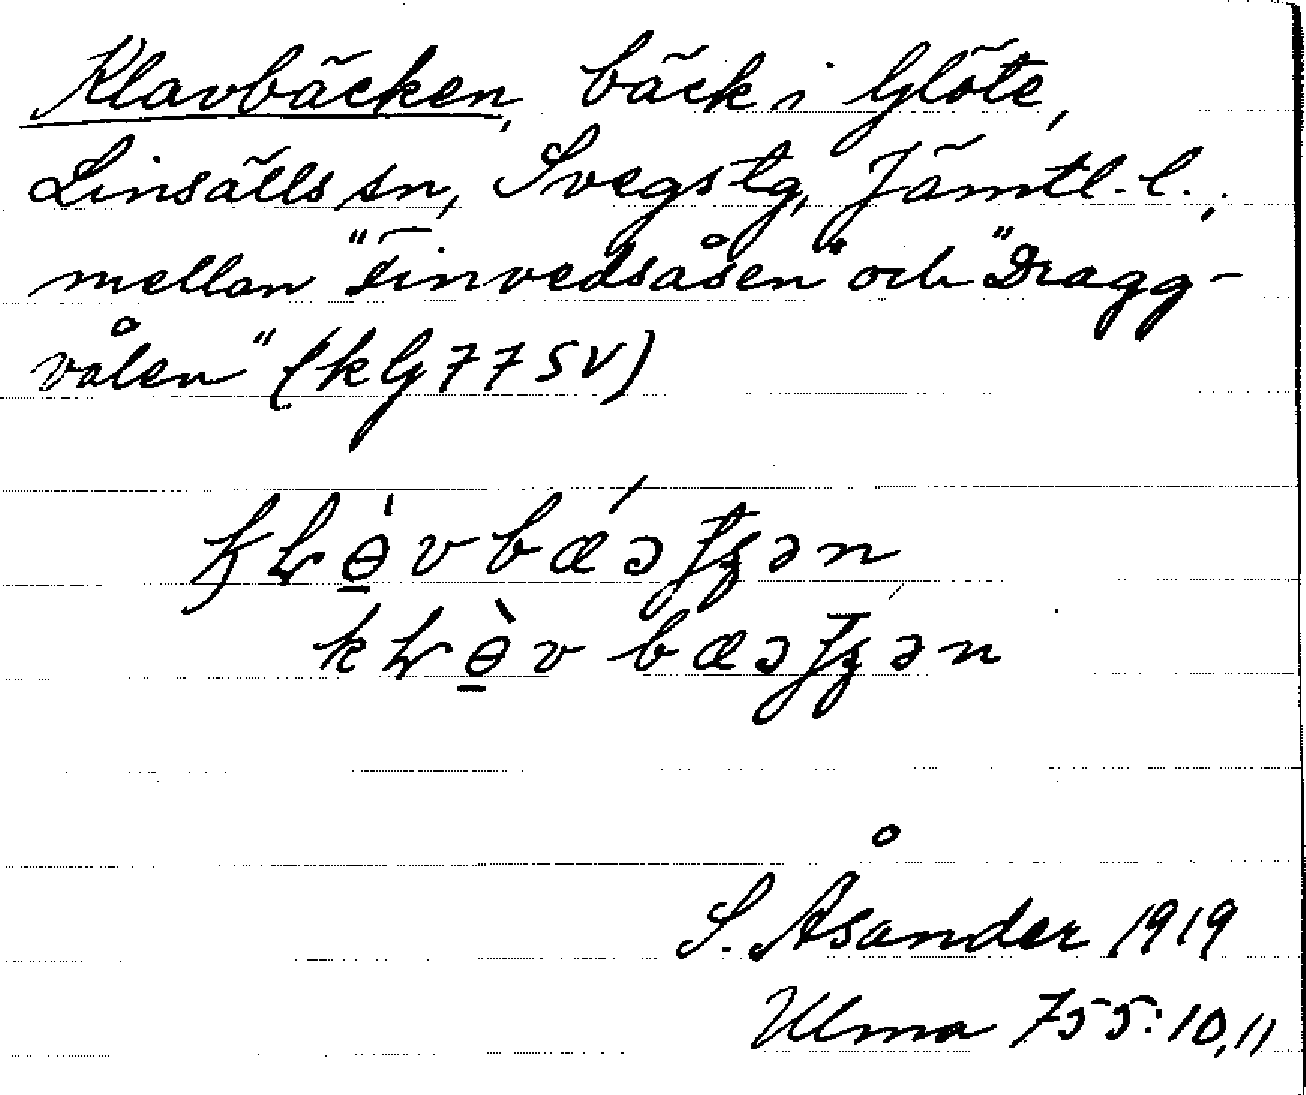 Klavbäcken, bäck i Glöte,
Linsälls sn, Svegs tg, Jämtl. l.,
mellan "Tinvedsåsen" och "Dragg-
vålen" (kG 77 SV)
bæə
bæə
S. Åsander 1919
Ulma 755: 10, 11